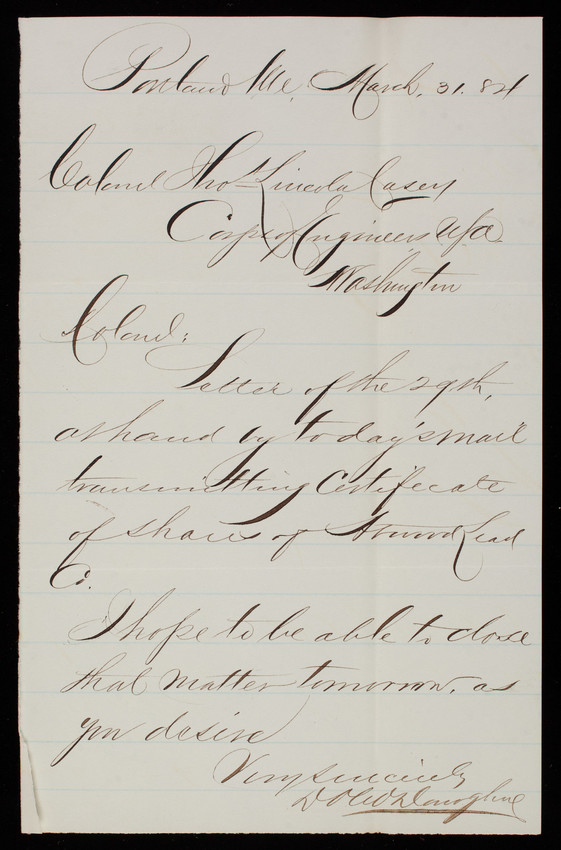 Portland Me, March. 31. 84
Colonel Thos Lincoln Casey
Corps of Engineers USA
Washington
Colonel:
Letter of the 29th,
at hand by to day's mail
transmitting Certificate
of shares of Atwood Lead
Co.
I hope to be able to close
that matter tomorrow. as
you desire
Very sincerely
D O'C O'Donoghue